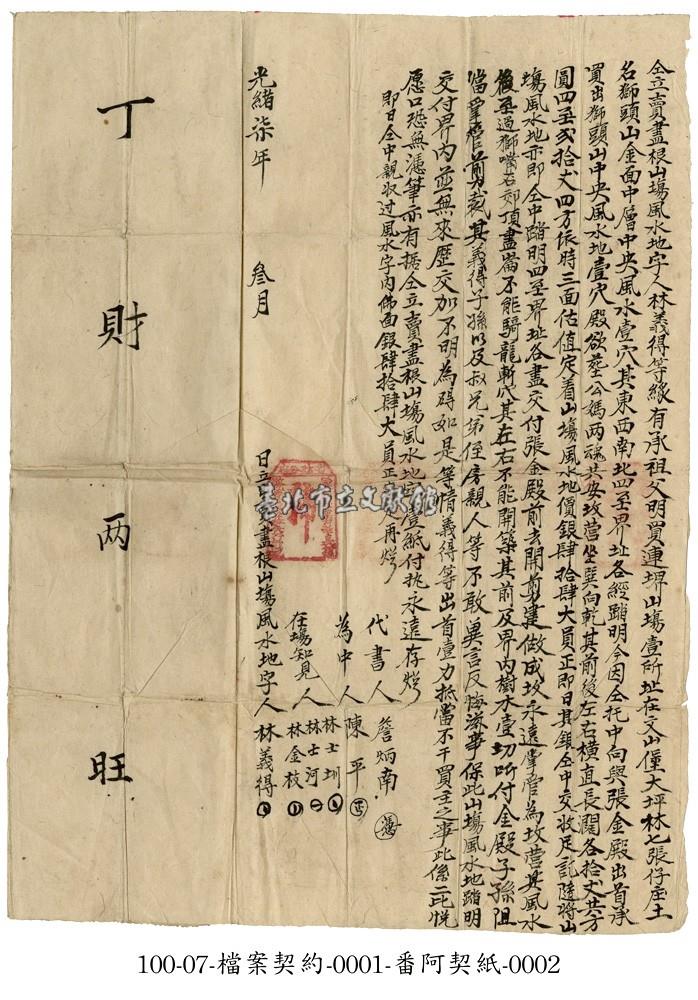 仝立賣盡根山塲風水地字人林義得等緣有承祖父明買連墘山塲壹所址在文山堡大坪林七張仔庄土
名獅頭山金面中層中央風水壹穴其東西南北四至界址各經踏明今因仝托中向與張金殿出首承
買出獅頭山中央風水地壹穴殿欲塟公媽两魂共安坟营坐巽向乾其前後左右橫直長闊各拾丈共方
圓四至弍拾丈四方依時三面估值定着山塲風水地價銀肆拾肆大員正即日其銀仝中交收足訖隨將山
塲風水地亦即仝中踏明四至界址各盡交付張金殿前去開剪建做成坟永遠掌管為坟营其風水
後至過獅嘴石郊頂盡崙不能騎龍斬穴其在右不能開築其前及界内樹木壹切听付金殿子孫阻
當掌管前剪裁其義得子孫以及叔兄弟侄房親人等不敢異言反悔滋事保此山塲風水地踏明
交付界内並無來歷交加不明為碍如是等情義得等出首壹力抵當不干買主之事此係二比悦
愿口恐無憑筆亦有据仝立賣盡根山塲風水地字壹紙付执永遠存炤
即日仝中親收过風水字内佛面銀肆拾肆大員正 再炤
代書人 詹炳南
為中人 陳平
在塲知見人 林士圳
林士河
林金枝
光緒柒年 叁月 日立賣盡根山塲風水地字人 林義得
丁財两旺
臺北市立文獻館
100-07-檔案契約-0001-番阿契紙-0002